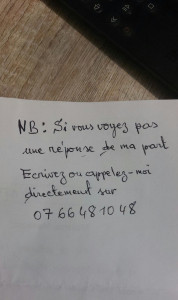 NB: Si vous voyez pas
une réponse de ma part
Ecrivez ou appelez-moi
directement sur
07 66 48 10 48